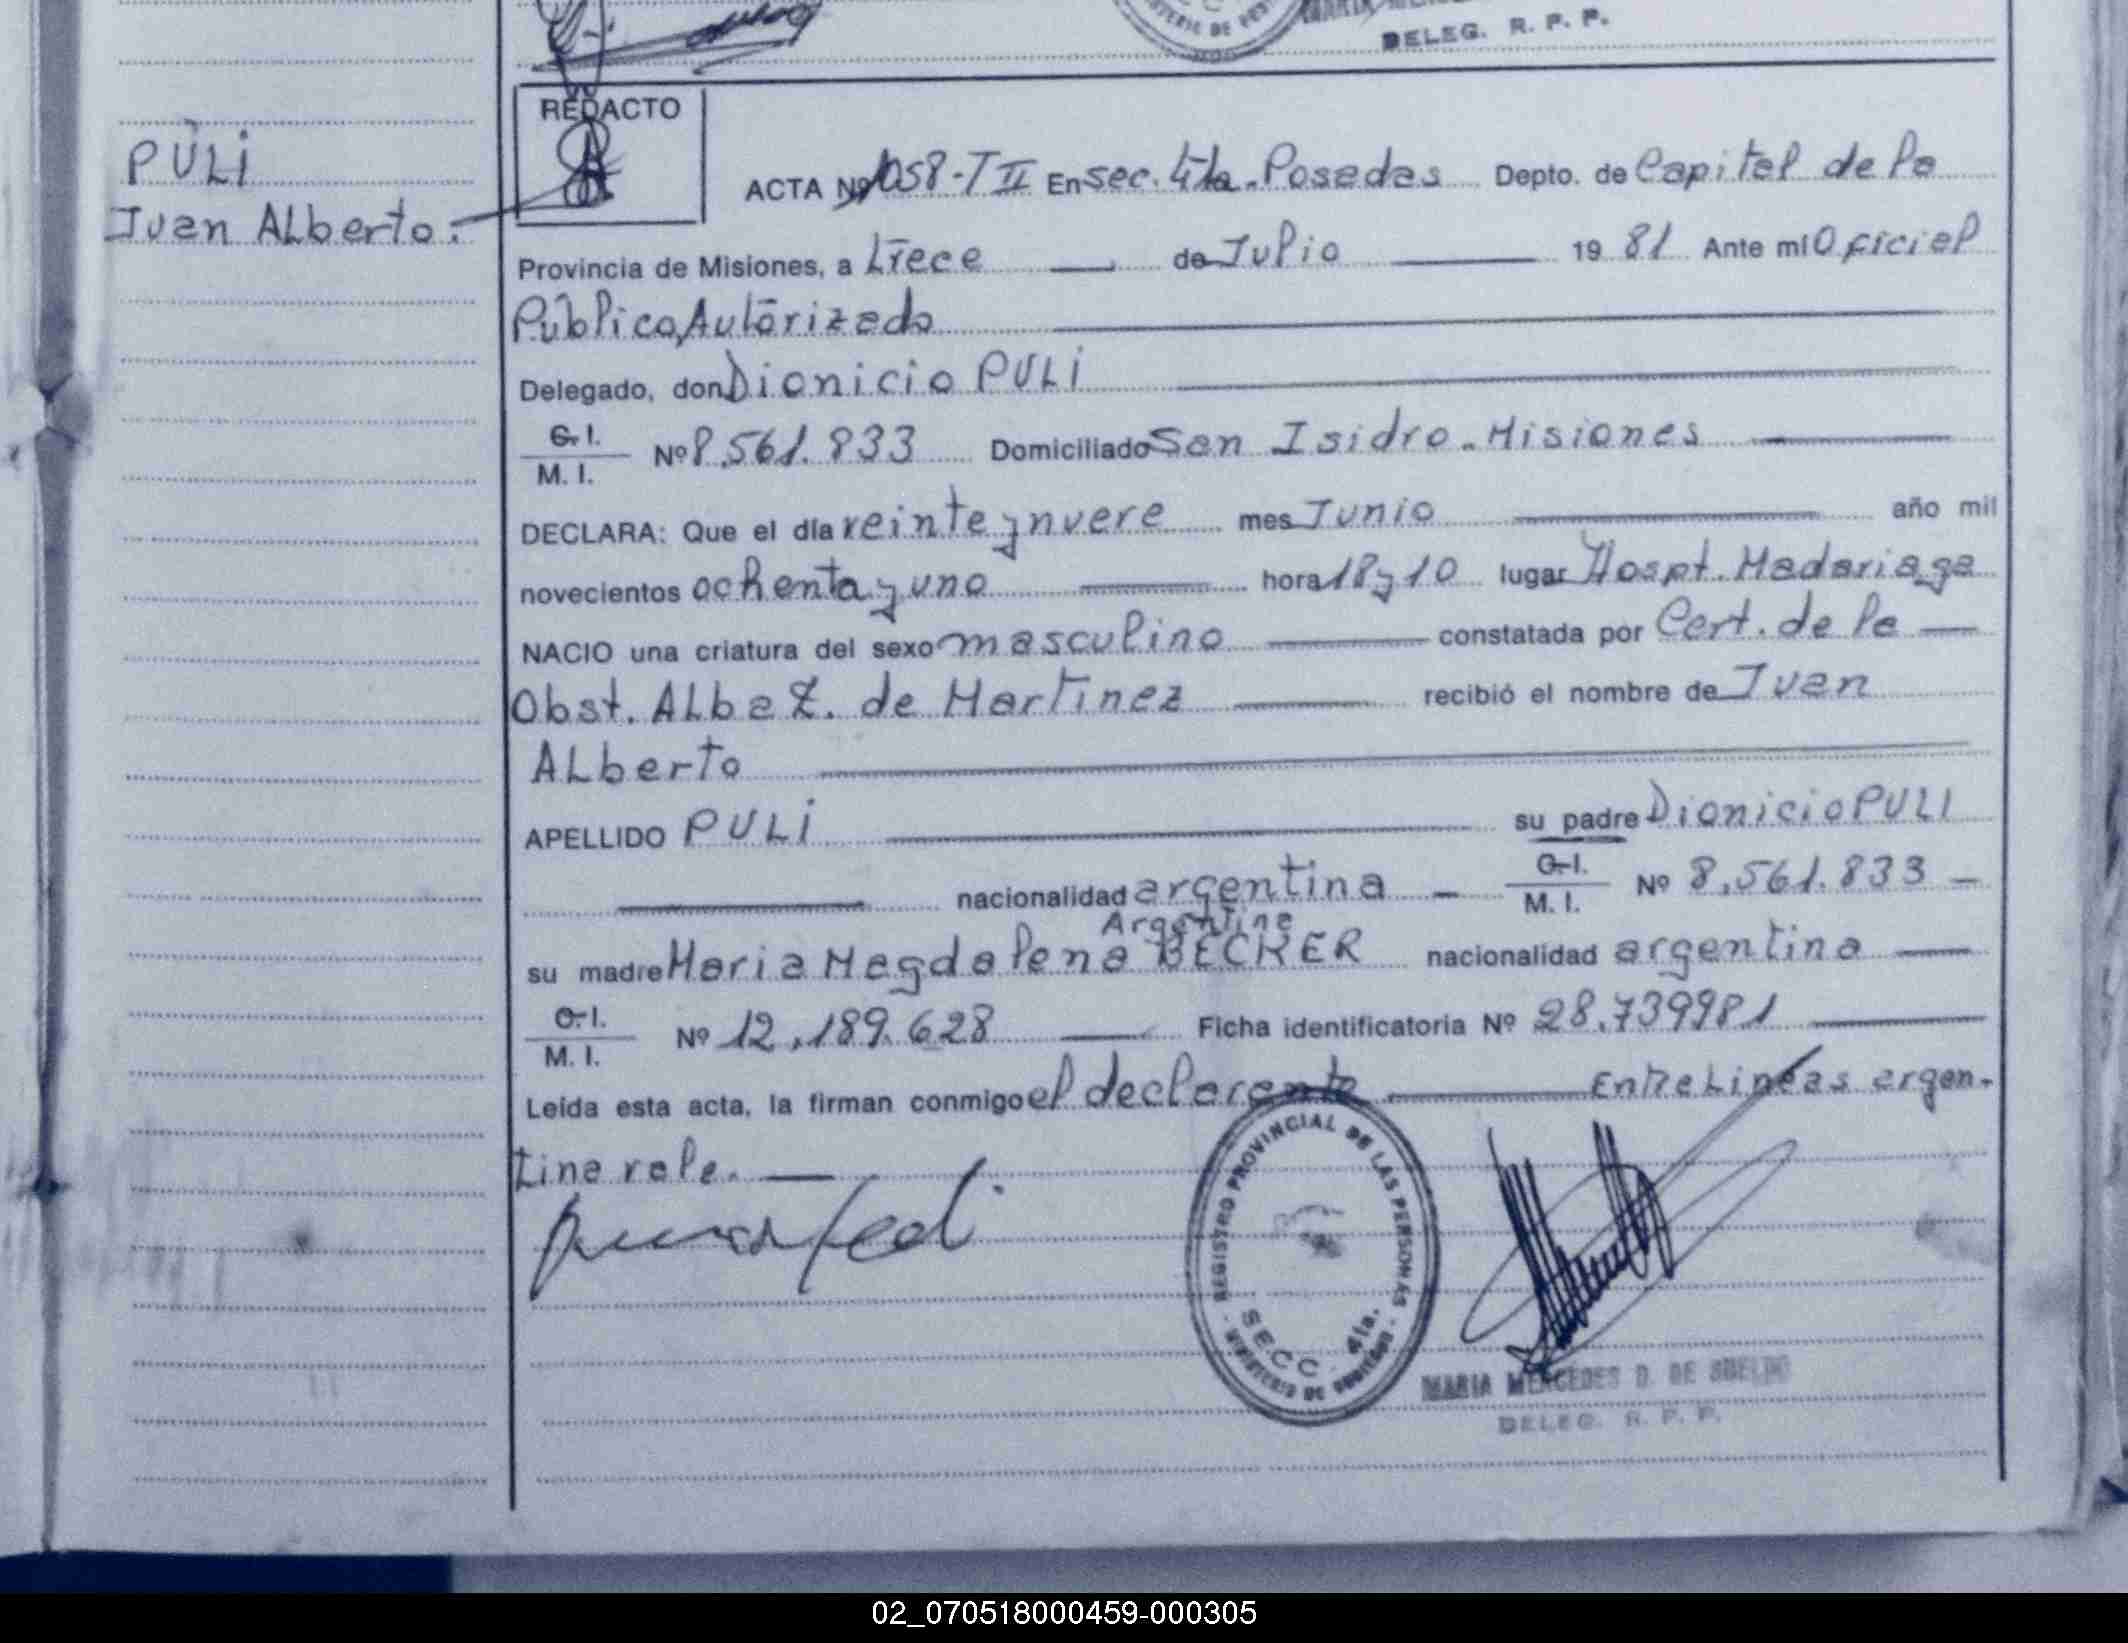 DELEG. R. P. P.
REDACTO
PULI
Juan ALberto.
ACTA Nº 1058-T II En sec. 4ta. Posadas Depto. de Capital de la
Provincia de Misiones, a trece de Julio 19 81 Ante mí Oficial
Público Autorizado
Delegado, don Dionicio PULI
C. I.
M. I. Nº 8.561.833 Domiciliado San Isidro. Misiones
DECLARA: Que el día veinte y nueve mes Junio año mil
novecientos ochenta y uno hora 18 y 10 lugar Hospt. Madariaga
NACIO una criatura del sexo masculino constatada por Cert. de la
Obst. ALba Z. de Martinez recibió el nombre de Juan
ALberto
APELLIDO PULI su padre Dionicio PULI
nacionalidad argentina C. I.
M. I. Nº 8.561.833
Argentina
su madre Maria Magdalena BECKER nacionalidad argentina
C. I.
M. I. Nº 12.189.628 Ficha identificatoria Nº 28.739981
Leída esta acta, la firman conmigo el declarante EntreLineas argen-
tina vale.
REGISTRO PROVINCIAL DE LAS PERSONAS
SECC. 4ta.
MINISTERIO DE GOBIERNO
MARIA MERCEDES D. DE SUELDO
DELEG. R. P. P.
02_070518000459-000305